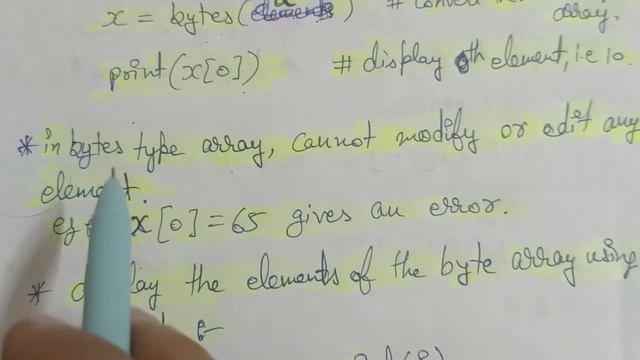 x = bytes( ) # array.
print(x[0]) # display 0th element, i.e 10.
* in bytes type array, cannot modify or edit any
element.
eg x[0] = 65 gives an error.
* the elements of the byte array using